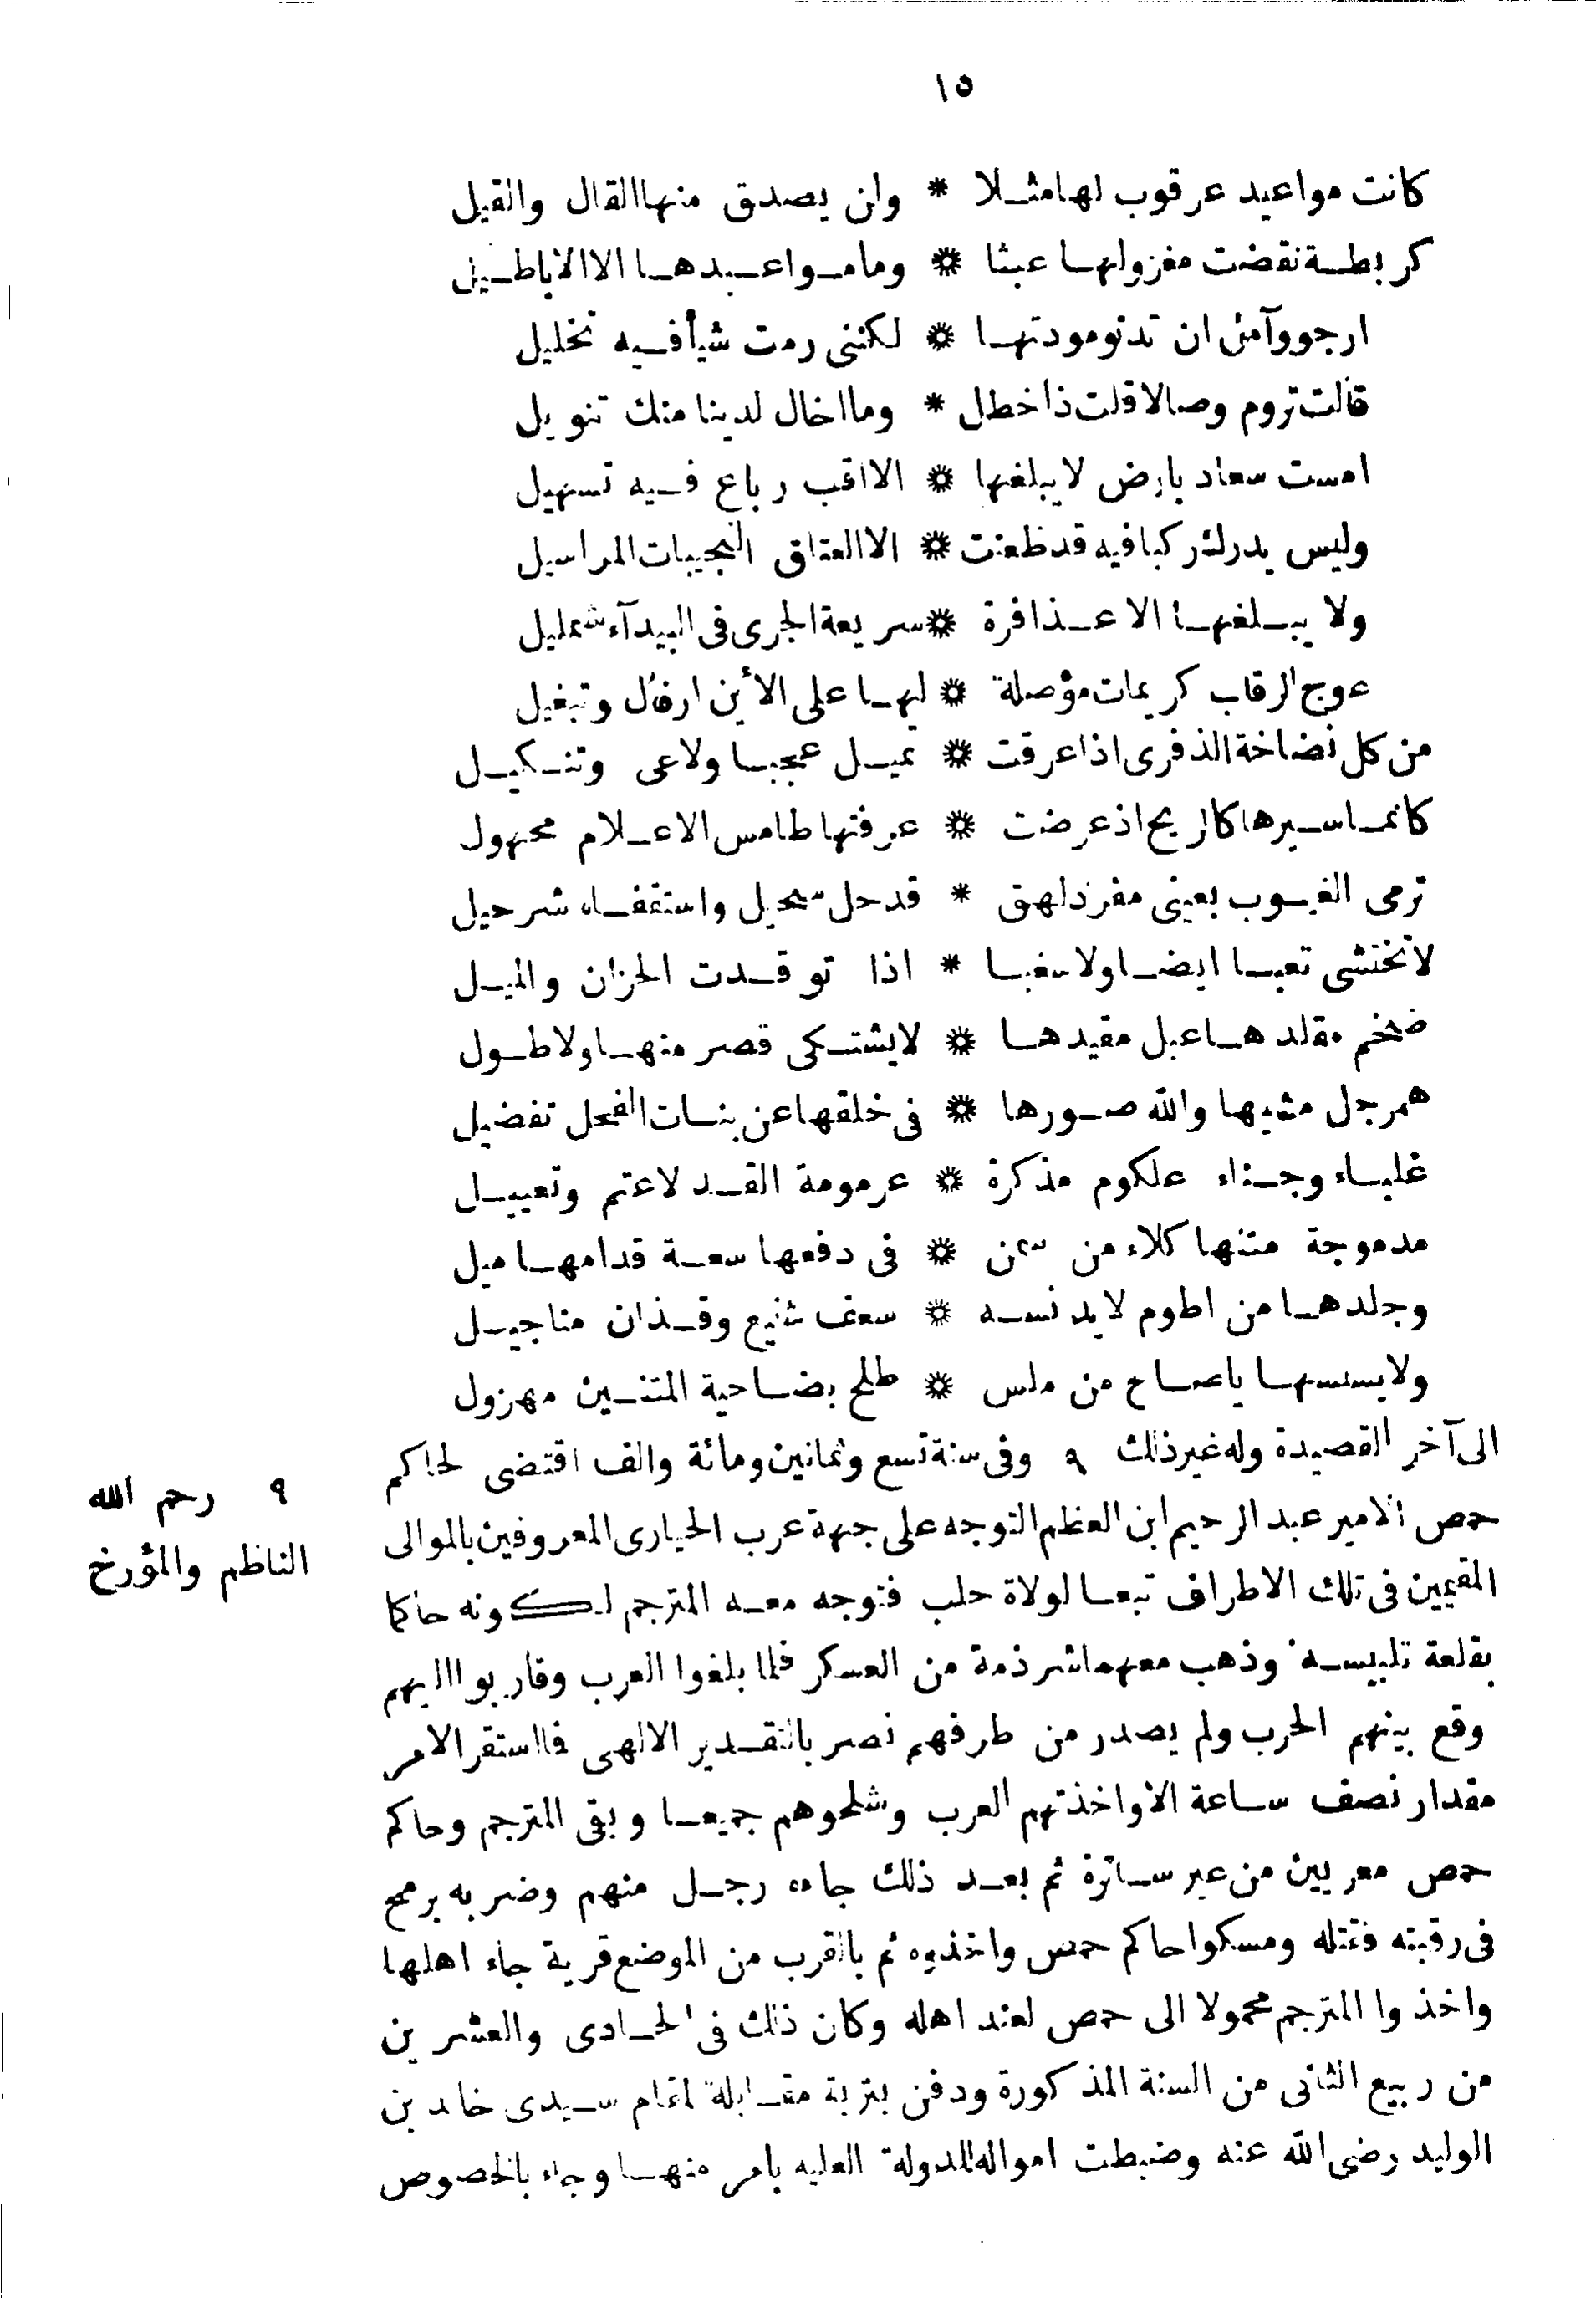 ١٥
كانت مواعيد عرقوب لها مثلا * وان يصدق منها القال والقيل
كربطة نقضت مغزولها عبثا * وما مواعيدها الا الاباطيل
ارجو وآمل ان تدنو مودتها * لكننى رمت شيأ فيه تخليل
قالت تروم وصالا قلت ذا خطل * وما اخال لدينا منك تنويل
امست سعاد بارض لا يبلغها * الا اقب رباع فيه تسهيل
وليس يدرك ركبا فيه قد ظعنت * الا العتاق النجيبات المراسيل
ولا يبلغها الا عذافرة * سريعة الجرى فى البيدآء شمليل
عوج الرقاب كريمات مؤصلة * لها على الأين ارقال وتبغيل
من كل نضاخة الذفرى اذا عرقت * تميل عجبا ولا عى وتنكيل
كانما سيرها كالريح اذ عرضت * عرفتها طامس الاعلام مجهول
ترمى الغيوب بعينى مفرد لهق * قد حل سحيل واستقفاه شرحيل
لا تختشى تعبا ايضا ولا سغبا * اذا توقدت الحزان والميل
ضخم مقلدها عبل مقيدها * لا يشتكى قصر منها ولا طول
همرجل مشيها والله صورها * فى خلقها عن بنات الفحل تفضيل
غلباء وجناء علكوم مذكرة * عرمومة القد لا عتم وتعييل
مدموجة متنها كلاء من سمن * فى دفعها سعة قدامها ميل
وجلدها من اطوم لا يدنسه * سعف شنيع وقذان مناجيل
ولا يمسها ياصاح من ملس * طلح بضاحية المتنين مهزول
الى آخر القصيدة وله غير ذلك ٩ وفى سنة تسع وثمانين ومائة والف اقتضى لحاكم
حمص الامير عبد الرحيم ابن العظم التوجه على جهة عرب الحيارى المعروفين بالموالى
المقيمين فى تلك الاطراف تبعا لولاة حلب فتوجه معه المترجم لكونه حاكما
بقلعة تلبيسة وذهب معهما شرذمة من العسكر فلما بلغوا العرب وقاربوا اليهم
وقع بينهم الحرب ولم يصدر من طرفهم نصر بالتقدير الالهى فما استقر الامر
مقدار نصف ساعة الا واخذتهم العرب وشلحوهم جميعا وبقى المترجم وحاكم
حمص معريين من غير ساترة ثم بعد ذلك جاءه رجل منهم وضربه برمح
فى رقبته فقتله ومسكوا حاكم حمص واخذوه ثم بالقرب من الموضع قرية جاء اهلها
واخذوا المترجم محمولا الى حمص لعند اهله وكان ذلك فى الحادى والعشرين
من ربيع الثانى من السنة المذكورة ودفن بتربة مقابلة لمقام سيدى خالد بن
الوليد رضى الله عنه وضبطت امواله للدولة العليه بامر منها وجاء بالخصوص
٩ رحم الله
الناظم والمؤرخ